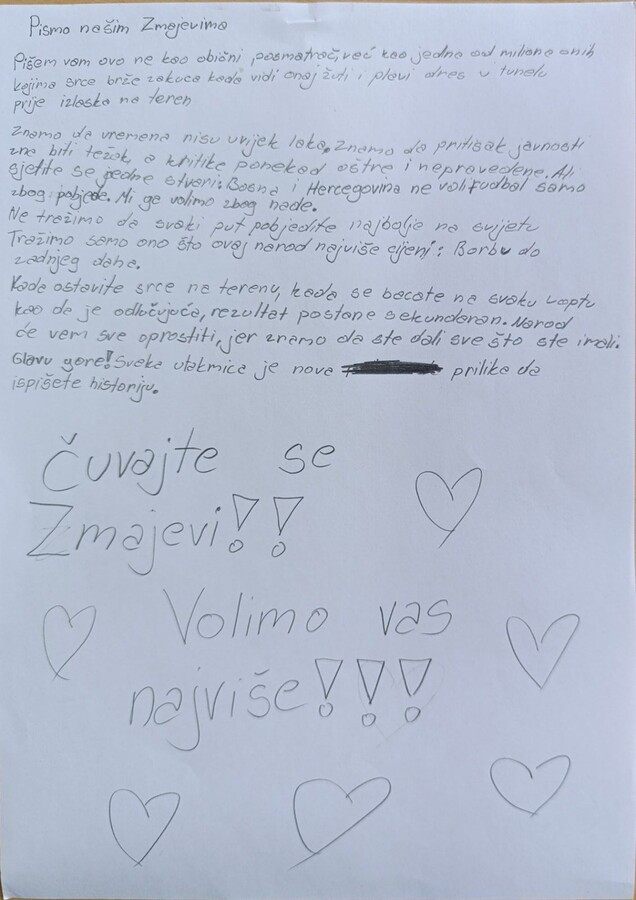 Pismo našim Zmajevima
Pišem vam ovo ne kao obični posmatrač, već kao jedna od miliona onih
kojima srce brže zakuca kada vidi onaj žuti i plavi dres u tunelu
prije izlaska na teren
Znamo da vremena nisu uvijek laka. Znamo da pritisak javnosti
zna biti težak, a kritike ponekad oštre i nepravedene. Ali
sjetite se jedne stvari: Bosna i Hercegovina ne voli fudbal samo
zbog pobjede. Mi ga volimo zbog nade.
Ne tražimo da svaki put pobjedite najbolje na svijetu
Tražimo samo ono što ovaj narod najviše cijeni: Borbu do
zadnjeg daha.
Kada ostavite srce na terenu, kada se bacate na svaku loptu
kao da je odlučujuća, rezultat postane sekundaran. Narod
će vam sve oprostiti, jer znamo da ste dali sve što ste imali.
Glavu gore! Svaka utakmica je nova prilika da
ispišete historiju.
Čuvajte se
Zmajevi!!
Volimo vas
najviše!!!